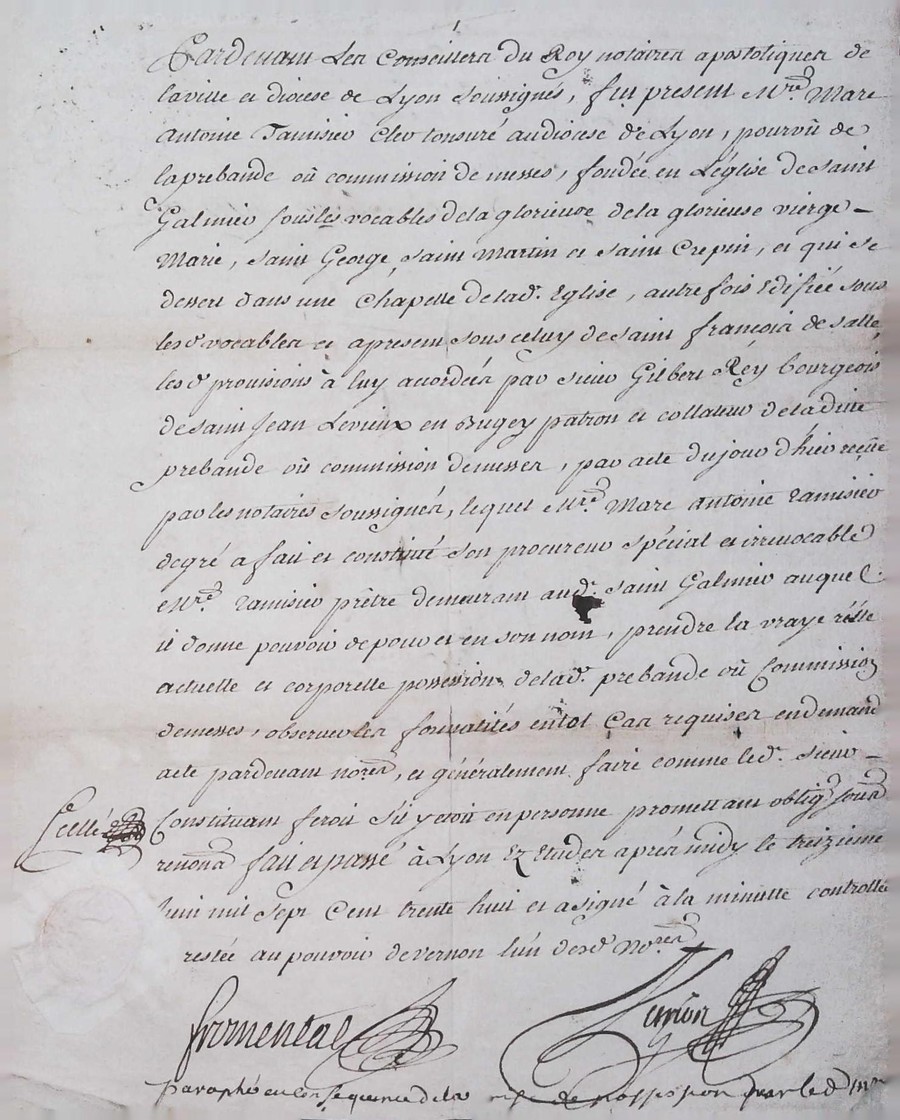 Pardevant Les Conseillers du Roy notaires apostoliques de
la ville et diocese de Lyon soussignés, fut present Mre. Marc
Antoine Tamisier Clerc tonsuré au diocese de Lyon, pourvû de
la prebande où commission de messes, fondée en L'église de Saint
Galmier sous les vocables de la glorieuse de la glorieuse vierge
Marie, saint George, saint Martin et saint Crepin, et qui se
dessert dans une Chapelle de lad. Eglise, autrefois Edifiée sous
lesd. vocables et apresent sous celuy de saint françois de salle,
lesd. provisions à luy accordées par sieur Gilbert Rey bourgeois
de saint Jean Levieux en Bugey patron et collateur de ladite
prebande où commission de messes, par acte du jour d'hier reçüe
par les notaires soussignés, lequel Mre. Marc antoine Tamisier
de gré a fait et constitué son procureur spécial et irrevocable
Mre. Tamisier prêtre demeurant aud. saint Galmier auquel
il donne pouvoir de pour et en son nom, prendre la vraye réelle
actuelle et corporelle possession de lad. prebande où Commission
de messes, observer les formalités en tel Cas requises en demand.
acte pardevant nores, et généralement faire comme led. sieur
Constituant feroit s'il y etoit en personne promettant oblig.
Scellé
renond. fait et passé à Lyon Ez Etudes après midy le treizieme
Juin mil sept Cent trente huit et a signé à la minutte controllée
restée au pouvoir de vernon l'un desd. Nores
fromental Vernon
paraphé en Consequence de la de possession par led.